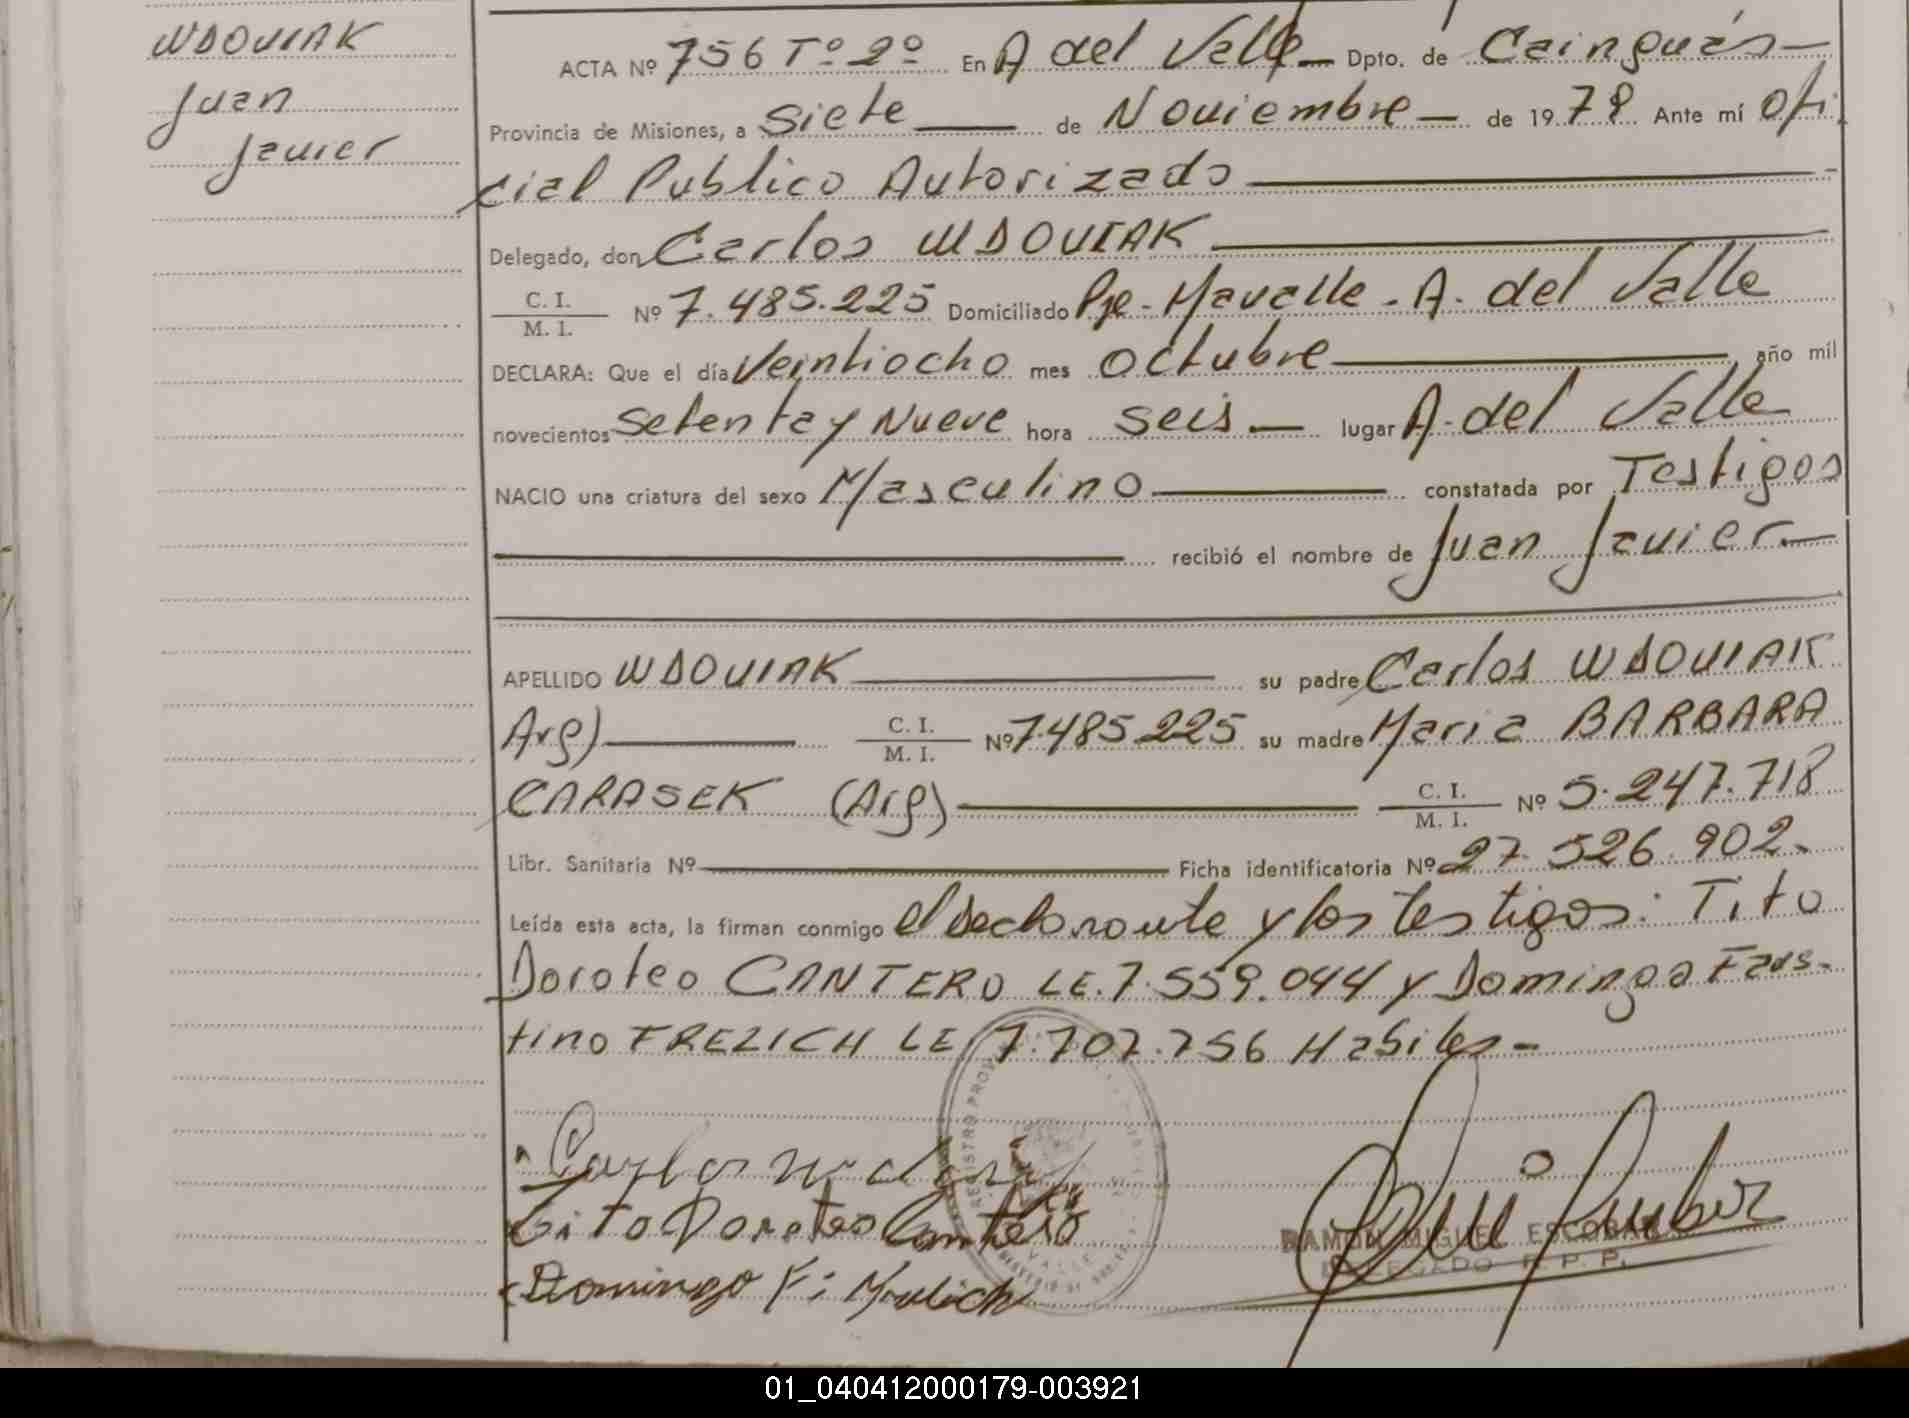 WDOVIAK
Juan
Javier
ACTA Nº 756 Tº 2º En A del Valle Dpto. de Cainguás
Provincia de Misiones, a siete de Noviembre de 1979 Ante mí Ofi
cial Publico Autorizado
Delegado, don Carlos WDOVIAK
C. I.
M. I. Nº 7.485.225 Domiciliado Pje. Mavalle. A. del Valle
DECLARA: Que el día Veintiocho mes octubre año mil
novecientos Setenta y Nueve hora seis lugar A. del Valle
NACIO una criatura del sexo Masculino constatada por Testigos
recibió el nombre de Juan Javier
APELLIDO WDOVIAK su padre Carlos WDOVIAK
Arg) C. I.
M. I. Nº 7.485.225 su madre Maria BARBARA
CARASEK (Arg) C. I.
M. I. Nº 5.247.718
Libr. Sanitaria Nº Ficha identificatoria Nº 27.526.902.
Leída esta acta, la firman conmigo el declarante y los testigos: Tito
Doroteo CANTERO LE. 7.559.044 y Domingo Faus-
tino FREZICH LE 7.707.756 Habiles-
REGISTRO PROV
Carlos
Tito Doroteo Cantero
Domingo F.
RAMON MIGUEL ESCOBAR
DELEGADO R. P. P.
01_040412000179-003921